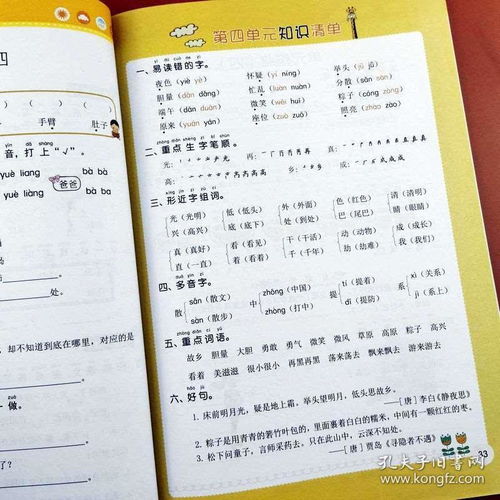 四
手臂 肚子
音,打上"√"。
yuè liang bà ba
yuè liàng 爸爸 bà bà
处。
却不知道到底在哪里,对应的是
做。
了?
第四单元知识清单
yì dú cuò de zì
一、易读错的字。
夜色(yiè yè) 怀疑(yí níng) 举头(jǔ jù)
胆量(dǎn dǎng) 忙乱(luàn nuàn) 分散(sàn sàn)
端午(dān duān) 微笑(wēi huī) 粽子(còng zòng)
原来(yuán yán) 座位(zuò zuǒ) 照亮(zhào zào)
二、重点生字笔顺。
光: 再:
高: 乡: 成:
xíng jìn zì zǔ cí
三、形近字组词。
光(光明) 低(低头) 外(外面) 色(红色) 清(清明)
兴(高兴) 底(底下) 处(处处) 巴(尾巴) 睛(眼睛)
真(真好) 看(看见) 干(干活) 动(动物) 成(成长)
直(一直) 着(看着) 千(千年) 劫(劫难) 我(我们)
duō yīn zì
四、多音字。
散 sǎn(散文) 中 zhōng(中国) 提 tí(提着) 系 xì(关系)
sàn(散步) zhòng(打中) dī(提防) jì(系上)
zhòng diǎn cí yǔ
五、重点词语。
故乡 胆量 大胆 勇敢 勇气 微笑 微风 草原 高原 粽子 高兴
看着 美滋滋 很小很小 再黑再黑 荡来荡去 飘来飘去 游来游去
hǎo jù
六、好句。
1. 床前明月光,疑是地上霜。举头望明月,低头思故乡。
——[唐]李白《静夜思》
2. 粽子是用青青的箬竹叶包的,里面裹着白白的糯米,中间有一颗红红的枣。
3. 松下问童子,言师采药去。只在此山中,云深不知处。
——[唐]贾岛《寻隐者不遇》
33
孔夫子旧书网